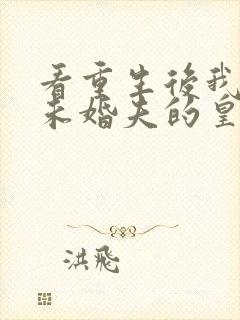 看重生後我
未婚夫的皇
洪飛